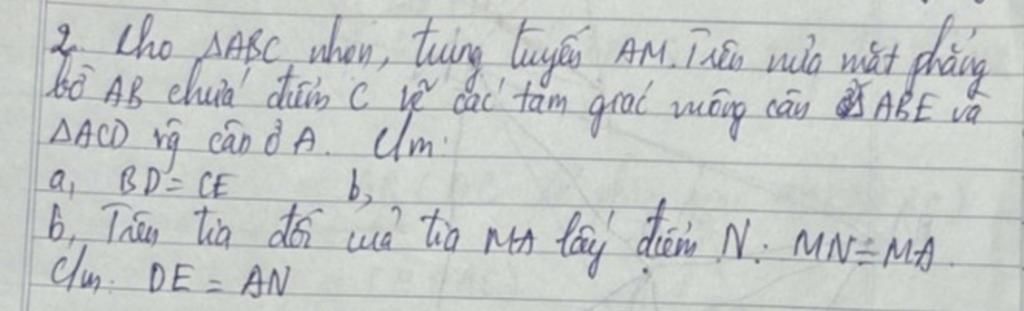 2. Cho ΔABC nhọn, trung tuyến AM. Trên nửa mặt phẳng
bờ AB chứa điểm C vẽ các tam giác vuông cân ABE và
ΔACD vg cân ở A. C/m:
a, BD = CE b,
b, Trên tia đối của tia MA lấy điểm N: MN = MA.
C/m: DE = AN